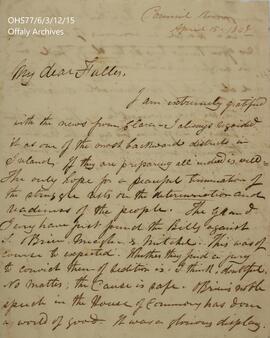 OHS77/6/3/12/15
Offaly Archives
Council Room
April 15. 1848
My dear Fuller,
I am extremely gratified
with the news from Clare. I always regarded
it as one of the most backward districts in
Ireland. If they are preparing all indeed is well.
The only hope for a peaceful termination of
the struggle rests on the determination and
readiness of the people. The Grand
Jury have just found the bills against
S. O'Brien Meagher & Mitchel. This was of
course to expected. Whether they find a jury
to convict them of sedition is, I think, doubtful.
No matter; the Cause is safe. O'Brien's noble
speech in the House of Commons has done
a world of good. It was a glorious display.